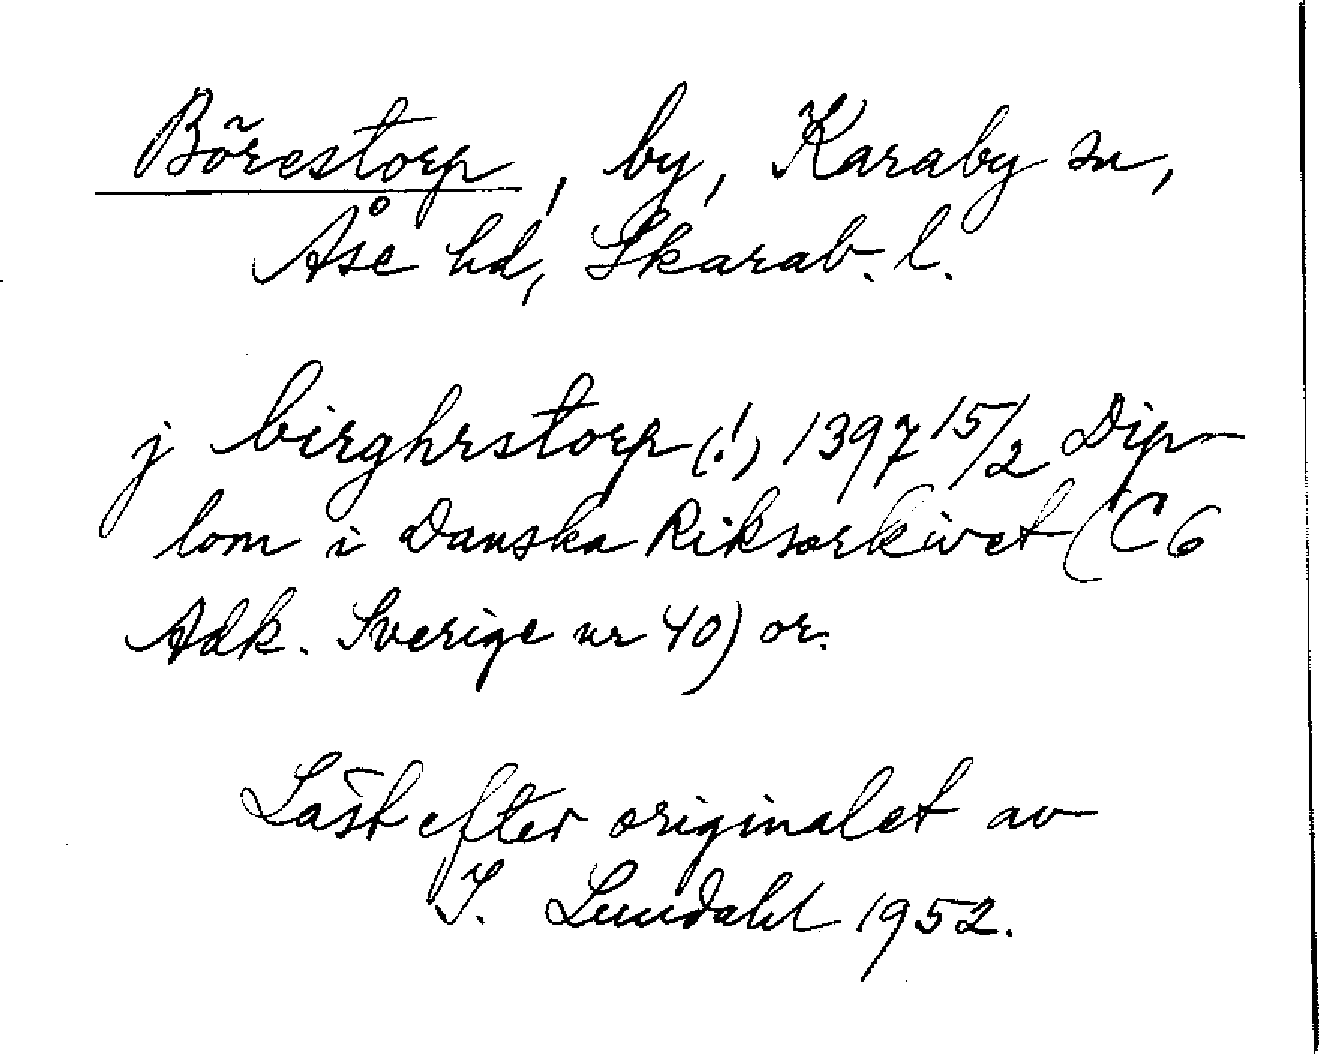 Börestorp, by, Karaby sn,
Åse hd, Skarab. l.
j birghrstorp (!) 1397 15/2 Dip-
lom i Danska Riksarkivet (C6
Adk. Sverige nr 40) or.
Läst efter originalet av
I. Lundahl 1952.